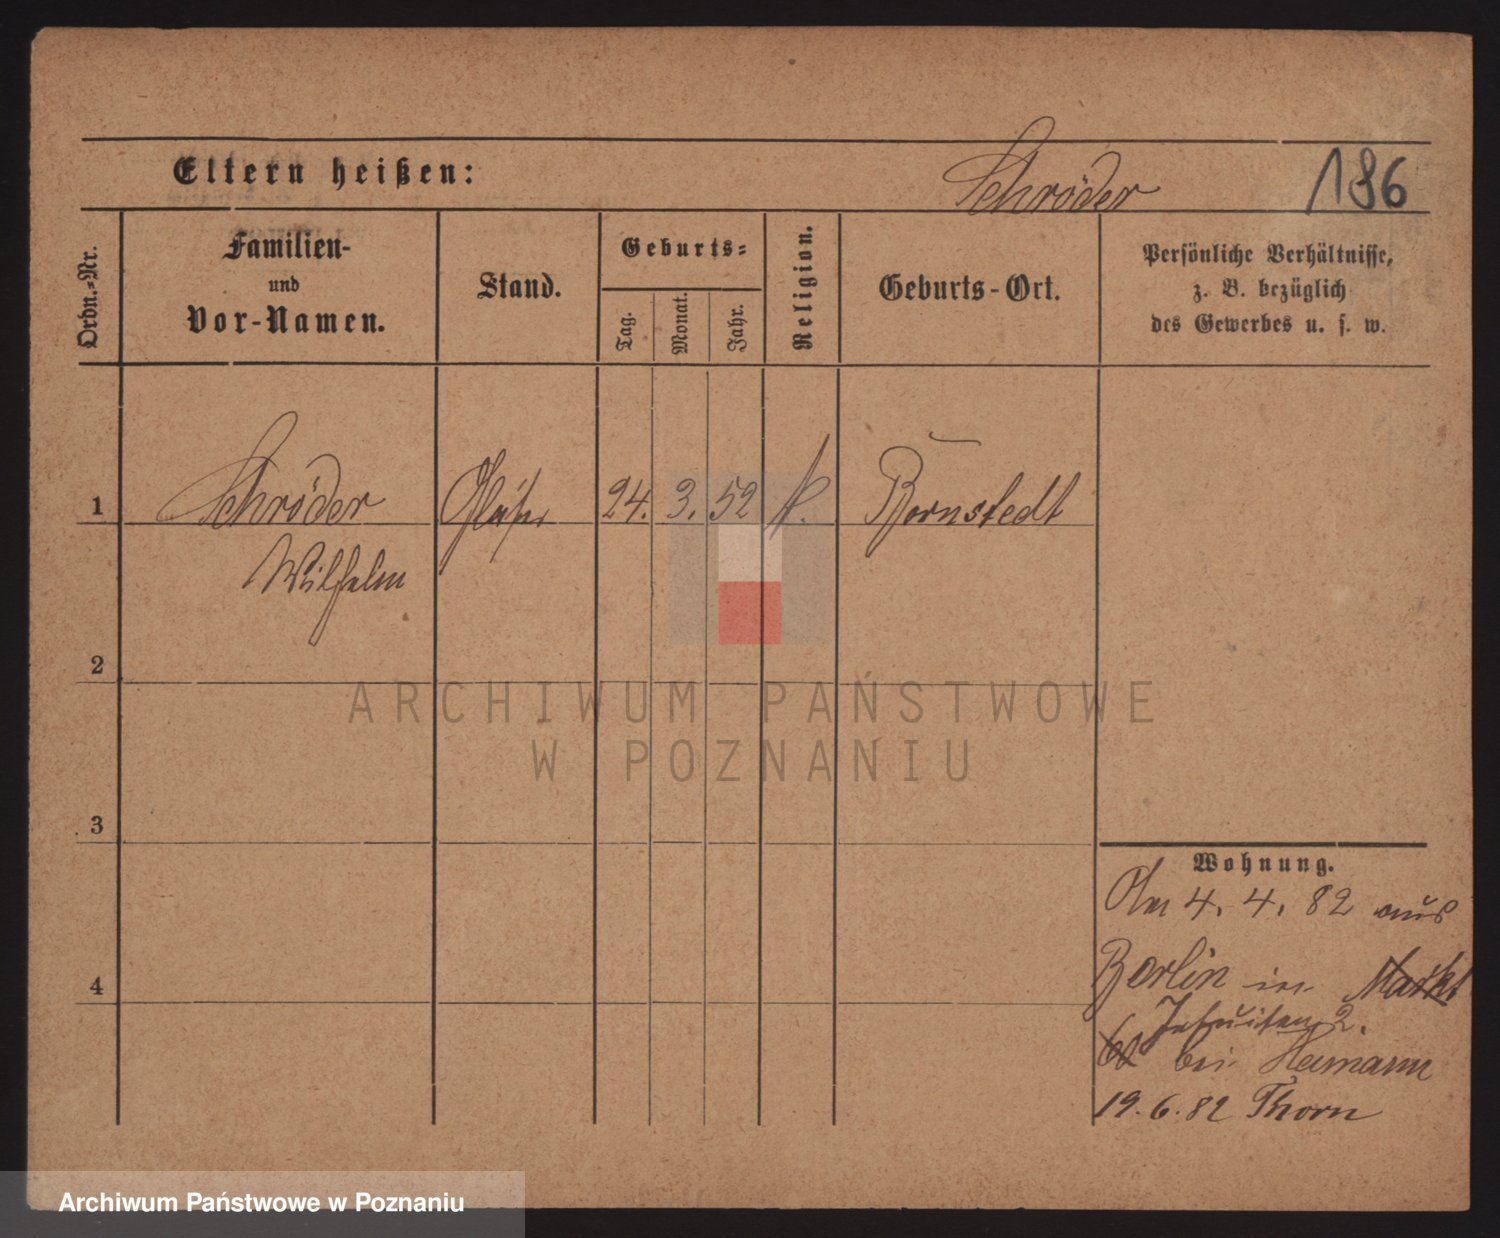 Eltern heißen: Schröder 186
Ordn.-Nr. Familien- und Vor-Namen. Stand. Geburts- Tag. Monat. Jahr. Religion. Geburts-Ort. Persönliche Verhältnisse, z. B. bezüglich des Gewerbes u. s. w.
1 Schröder Glaser 24. 3. 52 Bornstedt
Wilhelm
2
ARCHIWUM PAŃSTWOWE
W POZNANIU
3
Wohnung.
Am 4. 4. 82 aus
4
Berlin in Markt
Jesuiten 2.
bei Heimann
19. 6. 82 Thorn
Archiwum Państwowe w Poznaniu